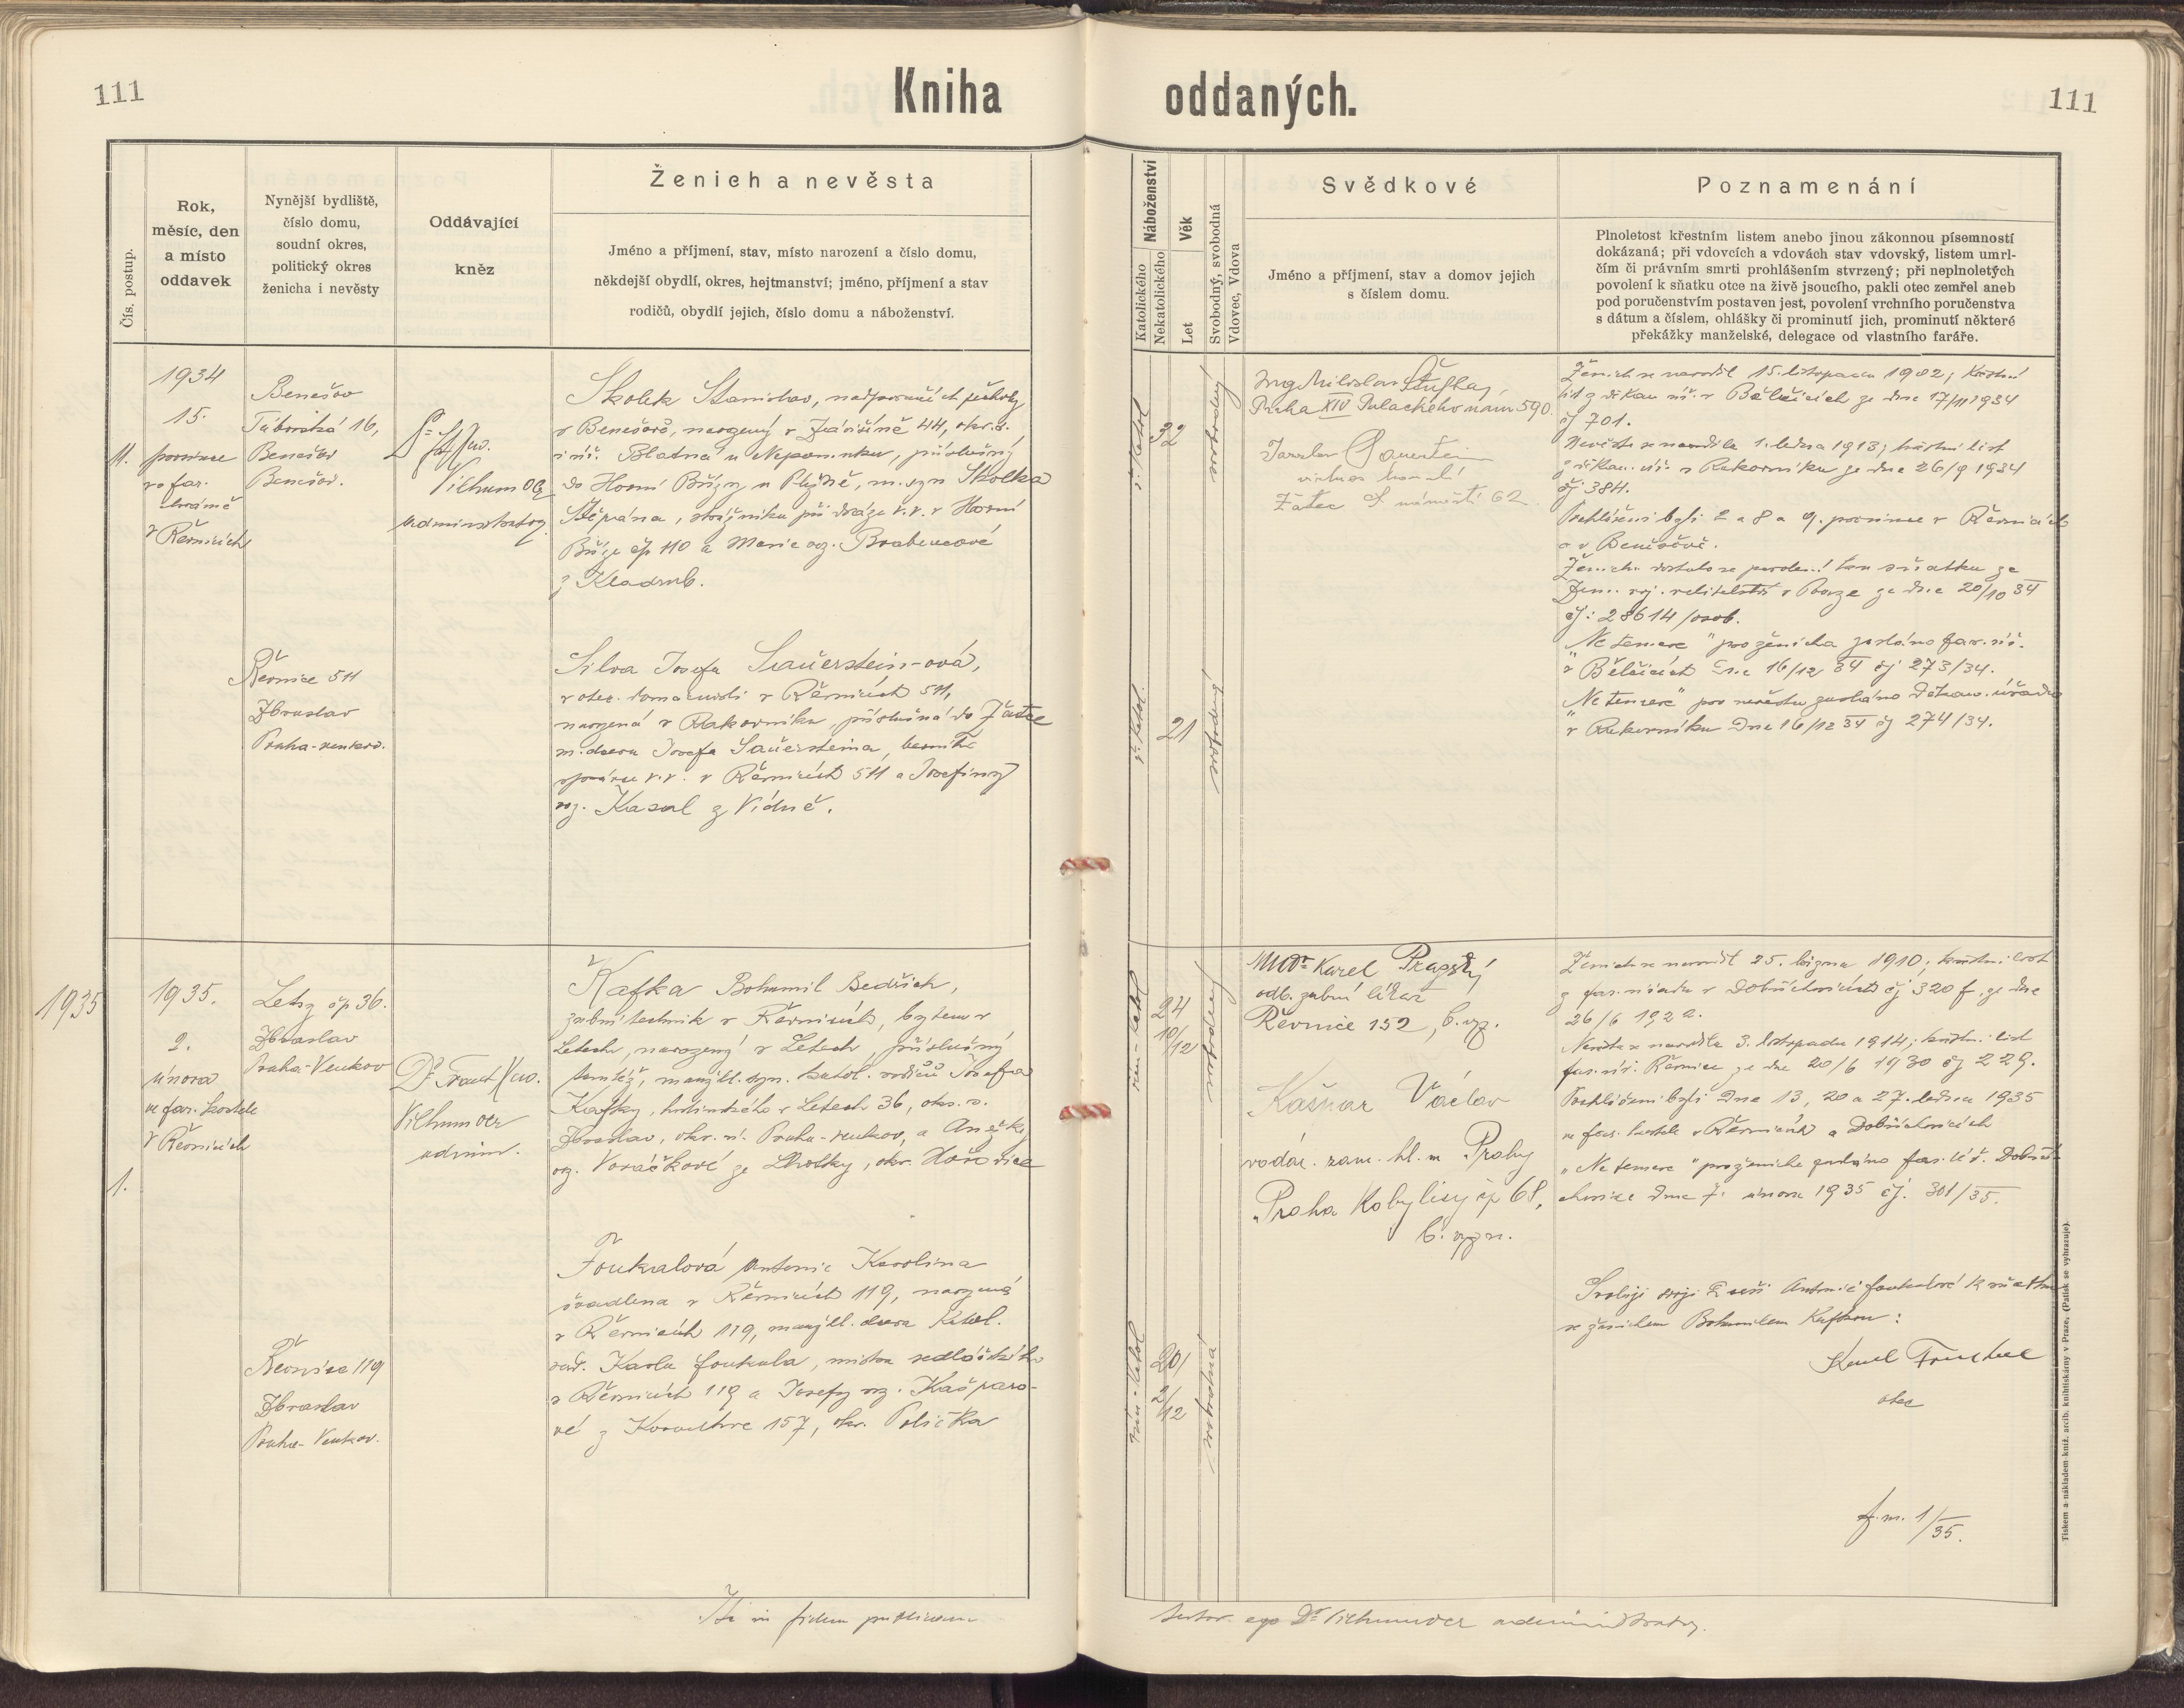 111
Kniha oddaných.
111
Čís. postup.
Rok,
měsíc, den
a místo
oddavek
Nynější bydliště,
číslo domu,
soudní okres,
politický okres
ženicha i nevěsty
Oddávající
kněz
Ženich a nevěsta
Jméno a příjmení, stav, místo narození a číslo domu,
někdejší obydlí, okres, hejtmanství; jméno, příjmení a stav
rodičů, obydlí jejich, číslo domu a náboženství.
Náboženství
Katolického
Nekatolického
Věk
Let
Svobodný, svobodná
Vdovec, Vdova
Svědkové
Jméno a příjmení, stav a domov jejich
s číslem domu.
Poznamenání
Plnoletost křestním listem anebo jinou zákonnou písemností
dokázaná; při vdovcích a vdovách stav vdovský, listem umrl-
čím či právním smrti prohlášením stvrzený; při neplnoletých
povolení k sňatku otce na živě jsoucího, pakli otec zemřel aneb
pod poručenstvím postaven jest, povolení vrchního poručenstva
s dátum a číslem, ohlášky či prominutí jich, prominutí některé
překážky manželské, delegace od vlastního faráře.
11.
1934
15.
prosince
ve far.
chrámě
v Řevnicích
Benešov
Táborská 16,
Benešov
Benešov.
Vilhum
administrator
Skolek Stanislav,
v Benešově, narozený v Závišíně 44, okr. s.
Blatná u Nepomuku, příslušný
do Horní Břízy u Plzně, m. syn Skolka
Štěpána, strážníka při dráze v. v. v Horní
Bříze čp 110 a Marie roz. Brabencové
z Kladrub.
ř. katol.
32
svobodný
Ing Miloslav
Praha XIV Palackého nám 590.
Jaroslav
Žatec náměstí 62
Ženich se narodil 15. listopadu 1902; křestní
list z děkan. úř. v Bělčicích ze dne 17/11 1934
čj 701.
Nevěsta se narodila 1. ledna 1913; křestní list
z děkan. úř. v Rakovníku ze dne 26/9 1934
čj 384.
Prohlášeni byli 2 a 8 a 9. prosince v Řevnicích
a v Benešově.
Ženichu dostalo se k sňatku ze
Zem. voj. velitelství v Praze ze dne 20/10 34
čj: 28614/osob.
„Ne temere" pro ženicha zasláno far. úř.
v Bělčicích dne 16/12 34 čj 273/34.
„Ne temere" pro nevěstu zasláno děkan. úřadu
v Rakovníku dne 16/12 34 čj 274/34.
Řevnice 511
Zbraslav
Praha-venkov.
Silva Josefa Sauerstein-ová,
v otec. domácnosti v Řevnicích 511,
narozená v Rakovníku, příslušná do Žatce
m. dcera Josefa Sauersteina, berního
správce v. v. v Řevnicích 511 a Josefiny
roz. Kasal z Vídně.
ř. katol.
21
svobodná
1935
1.
1935.
2.
února
ve far. kostele
v Řevnicích
Lety čp 36.
Zbraslav
Praha-Venkov
Dr Frant
Vilhum
admin.
Kafka Bohumil Bedřich,
zubní technik v Řevnicích, bytem v
Letech, narozený v Letech, příslušný
tamtéž, manžel. syn. katol. rodičů Josefa
Kafky, v Letech 36, okr. s.
Zbraslav, okr. ú. Praha-venkov, a Anežky
roz. Voráčkové ze Lhotky, okr. Hořovice
řím-katol
24
10/12
svobodný
MUDr Karel Pragský
odb. zubní lékař
Řevnice 152,
Kašpar Václav
vodár. zam. hl. m Prahy
Praha Kobylisy čp 68,
Ženich se narodil 25. března 1910; křestní list
z far. úřadu v Dobřichovicích čj 320 f. ze dne
26/6 1922.
Nevěsta se narodila 3. listopadu 1914; křestní list
far. úř. Řevnice ze dne 20/6 1930 čj 229.
Prohlášeni byli dne 13, 20 a 27. ledna 1935
ve far. kostele v Řevnicích a Dobřichovicích
„Ne temere" pro ženicha zasláno far. úř. Dobři-
chovice dne 7. února 1935 čj. 301/35.
Svoluji svoji dceři Antonii Foukalové k sňatku
se ženichem Bohumilem Kafkou:
Karel Foukal
otec
f. m. 1/35.
Řevnice 119
Zbraslav
Praha-Venkov.
Foukalová Antonie Karolina
švadlena v Řevnicích 119, narozená
v Řevnicích 119, manžel. dcera katol.
rod. Karla Foukala, mistra sedlářského
v Řevnicích 119 a Josefy roz. Kašparo-
vé z Korouhve 157, okr. Polička
řím-katol
20
2/12
svobodná
Ita in fidem publicam
testor ego Dr Vilhum administrator.
Tiskem a nákladem kníž. arcib. knihtiskárny v Praze. (Patisk se vyhrazuje).